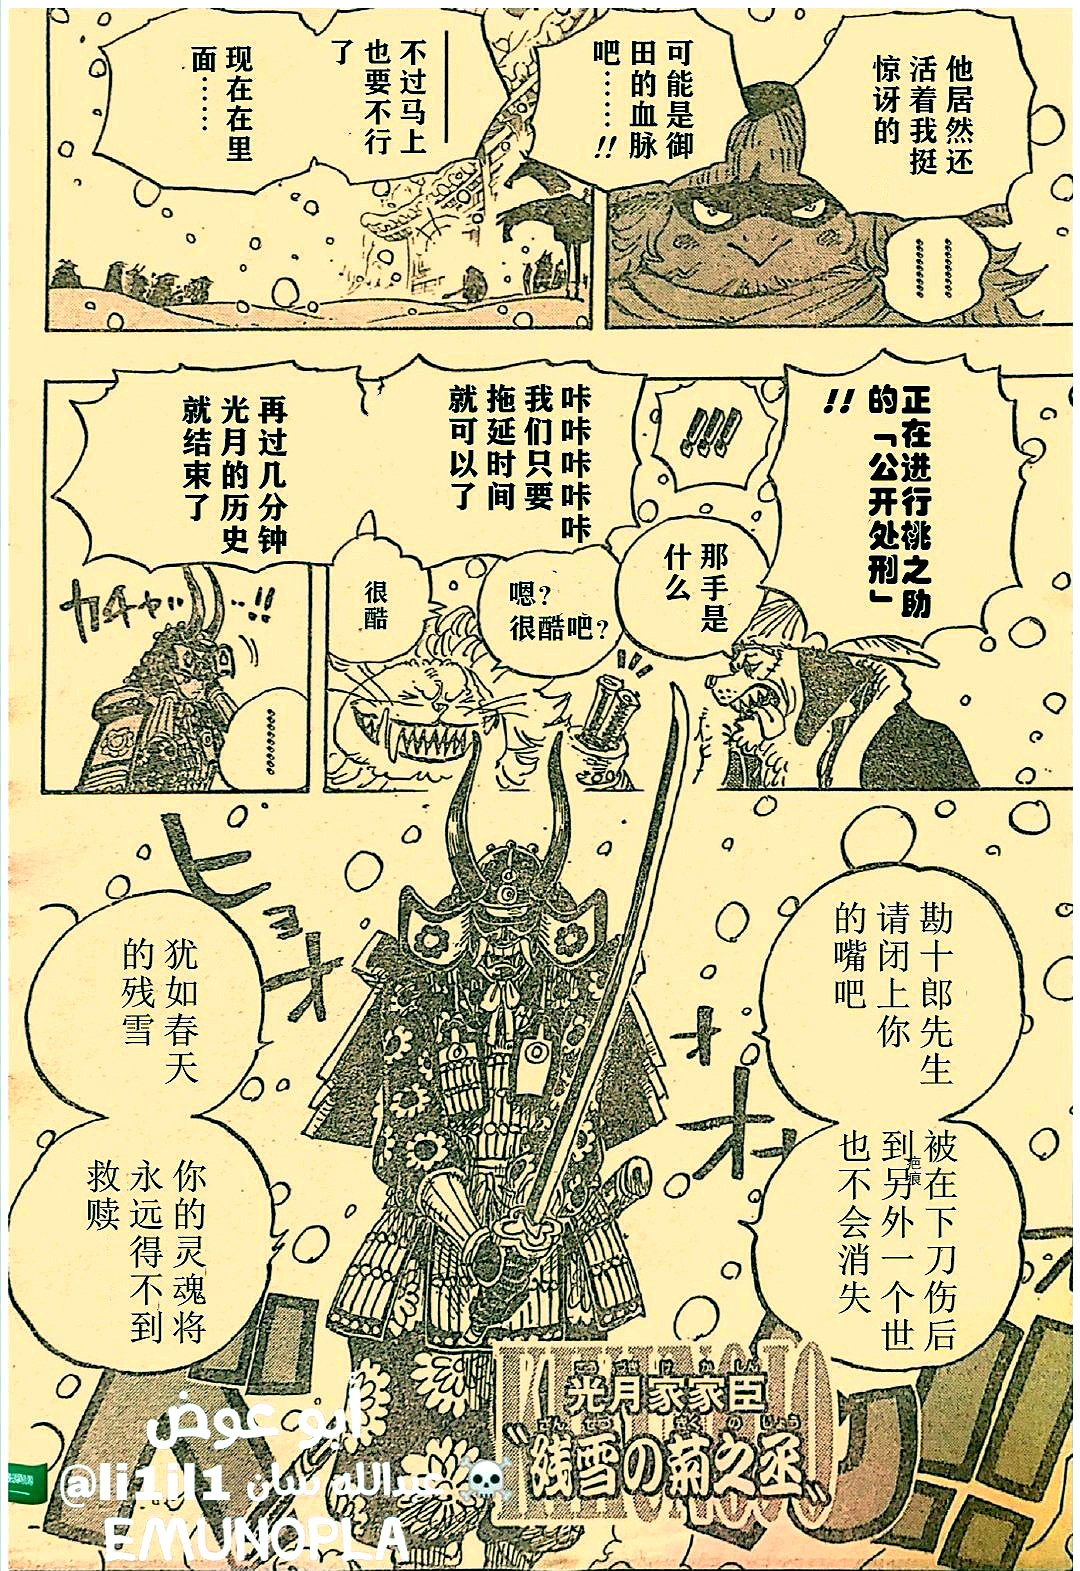 他居然还
活着我挺
惊讶的
可能是御
田的血脉
吧……!!
不过马上
也要不行
了
现在在里
面……
正在进行桃之助
的「公开处刑」
!!
!!!
那手是
什么
嗯?
很酷吧?
很酷
咔咔咔咔咔
我们只要
拖延时间
就可以了
再过几分钟
光月的历史
就结束了
カチャッ…!!
ヒョオ
オオオ
勘十郎先生
请闭上你
的嘴吧
被在下刀伤后
疤痕
到另外一个世
也不会消失
犹如春天
的残雪
你的灵魂将
永远得不到
救赎
KIKUNOJO
こうづき け か しん
光月家家臣
ざん せつ きく の じょう
〝残雪の菊之丞〟
أبو عوض
@li1il1 عبدالله سان ☠
EMUNOPLA